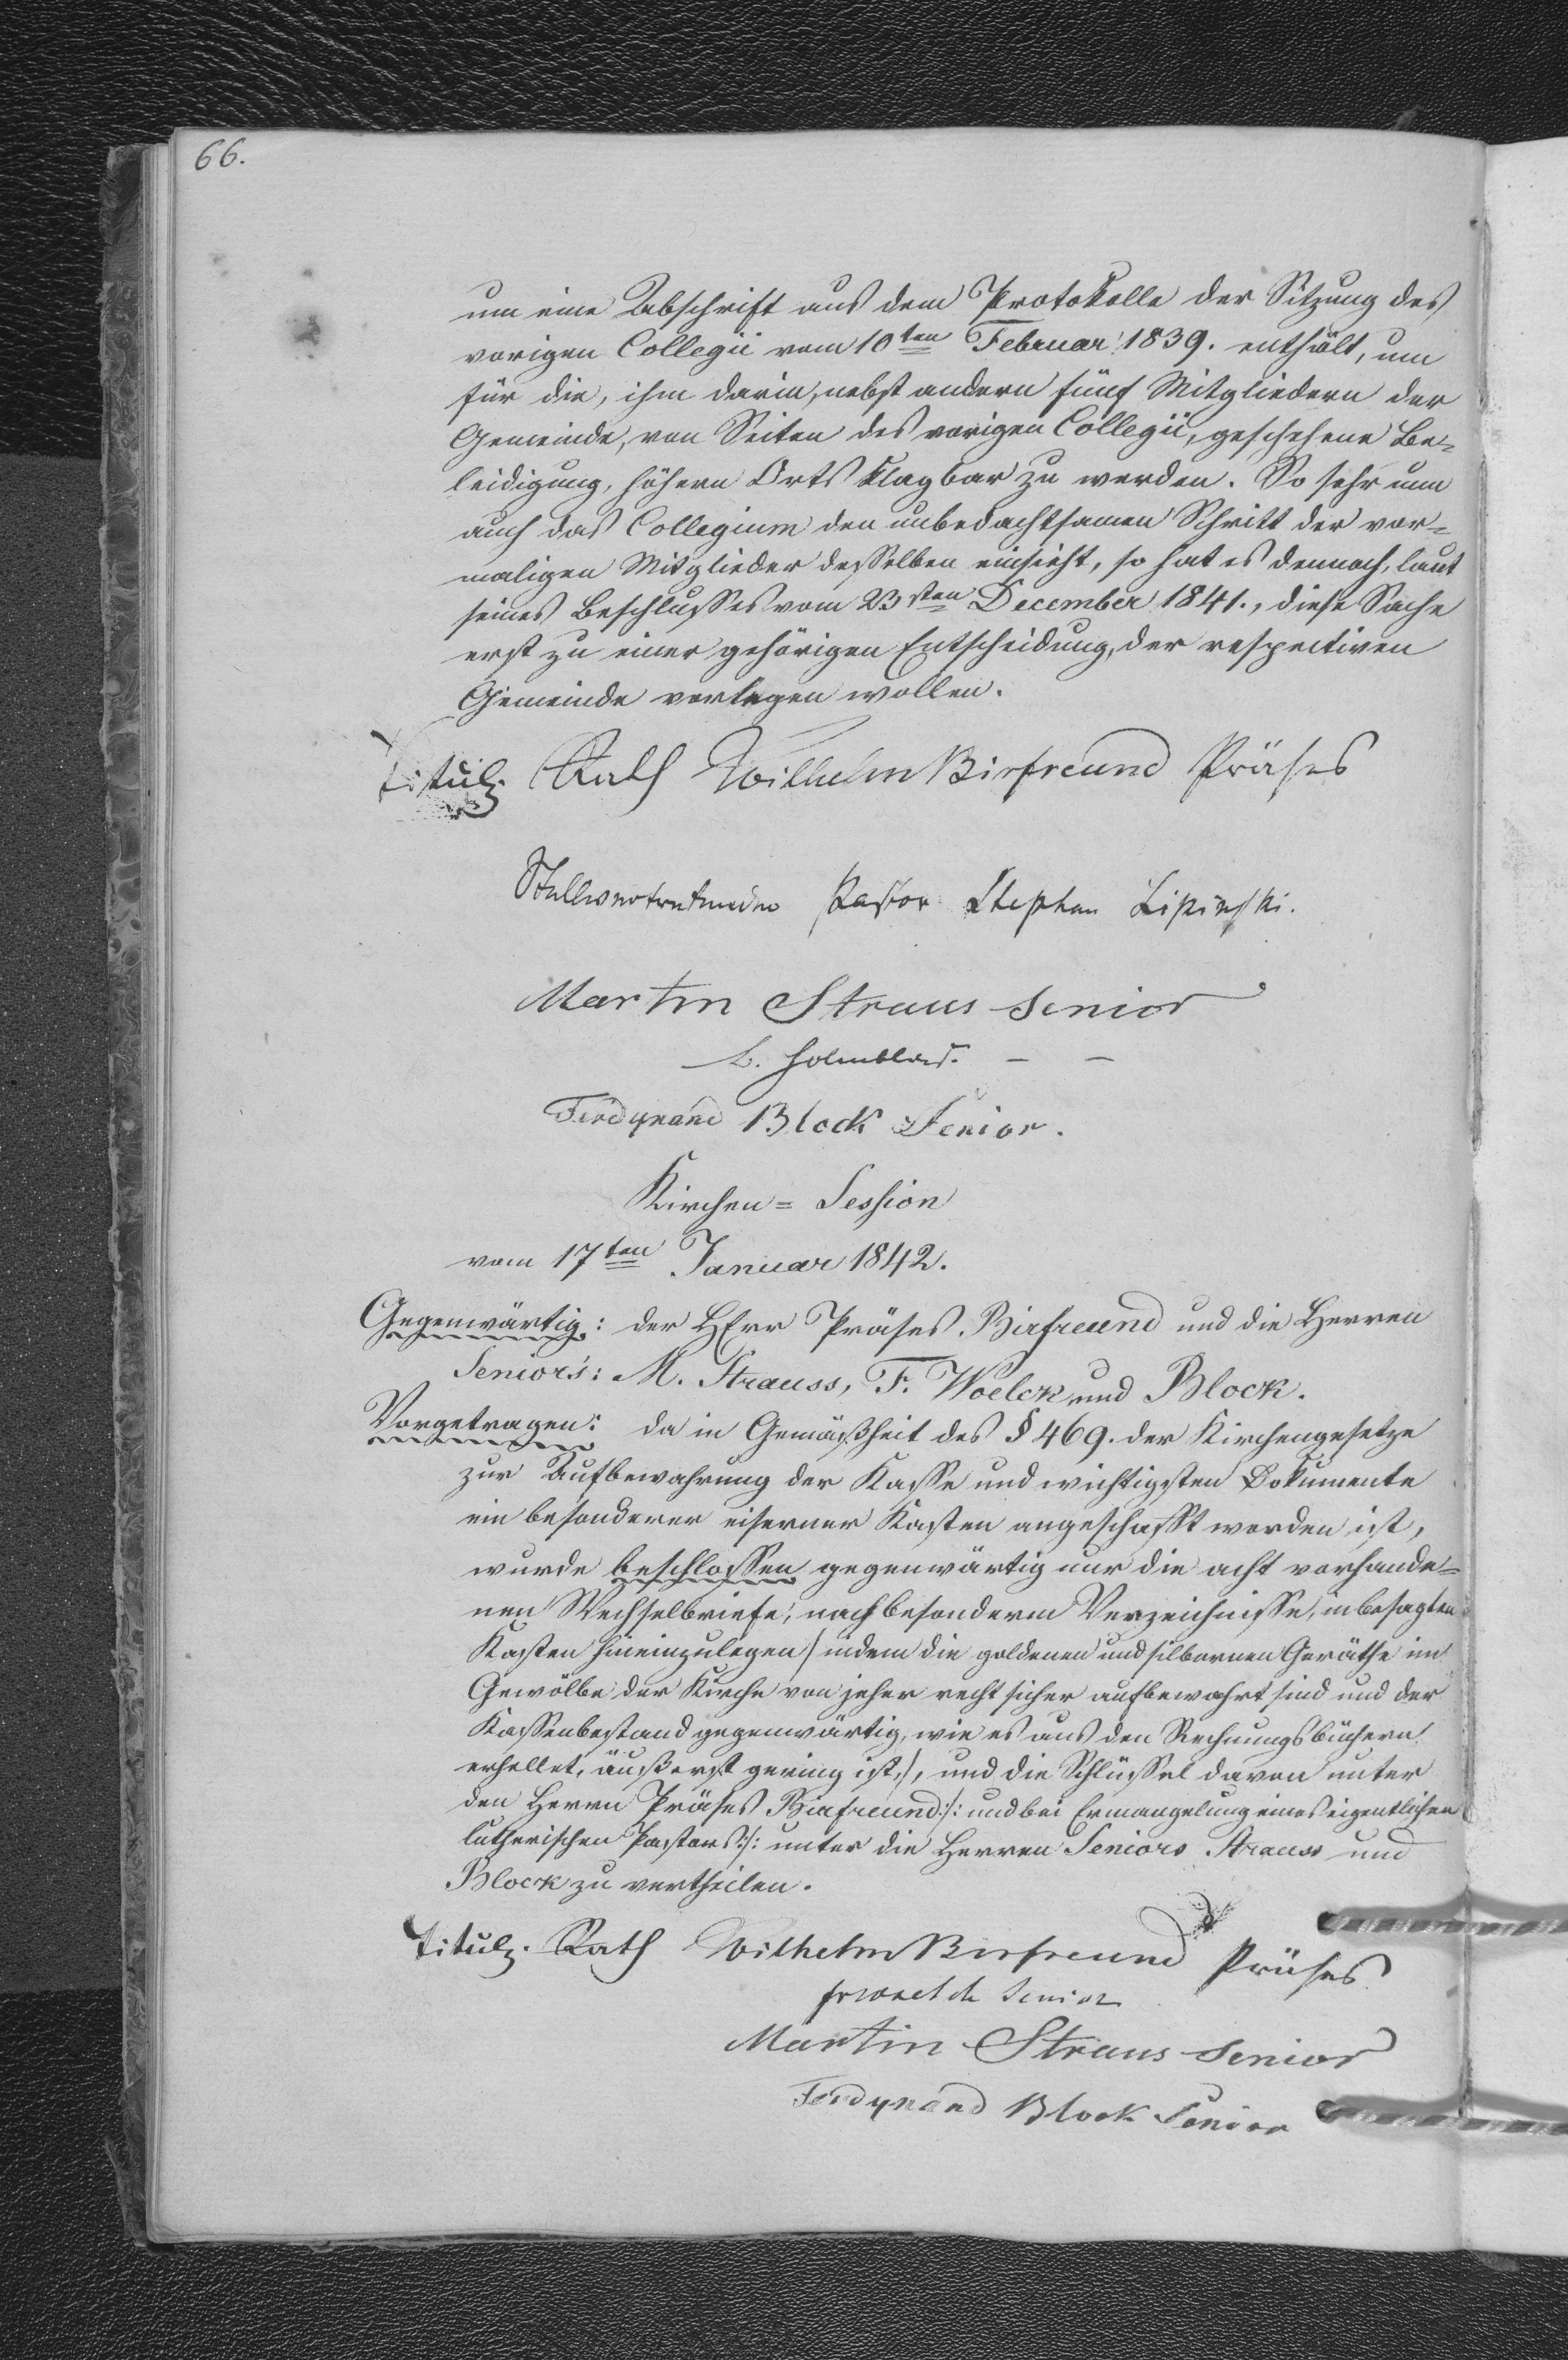 66.
um eine Abschrift aus dem Protokolle der Sitzung des
vorigen Collegii vom 10ten Februar 1839. enthält, um
für die, ihm darin, nebst andern fünf Mitgliedern der
Gemeinde, von Seiten des vorigen Collegii, geschehene Be-
leidigung, höhern Orts klagbar zu werden. So sehr nun
auch das Collegium den unbedachtsamen Schritt der vor-
maligen Mitglieder desselben einsieht, so hat es dennoch, laut
seines Beschlusses vom 23sten December 1841., diese Sache
erst zu einer gehörigen Entscheidung, der respectiven
Gemeinde vorlegen wollen.
Titulz. Rath Wilhelm Birfreund Präses
Stellvertretender Pastor Stephan Lipinski.
Martin Straus Senior
Holmblad. — —
Ferdynand Block Senior.
Kirchen = Session
vom 17ten Januar 1842.
Gegenwärtig: der HErr Präses Birfreund und die Herren
Senior's: M. Strauss, F. Woelck und Block.
Vorgetragen: da in Gemäßheit des § 469. der Kirchengesetze
zur Aufbewahrung der Kasse und wichtigsten Dokumente
ein besonderer eiserner Kasten angeschafft worden ist,
wurde beschlossen gegenwärtig nur die acht vorhande-
nen Wechselbriefe, nach besonderm Verzeichnisse, in besagten
Kasten hineinzulegen / indem die goldenen und silbernen Geräthe im
Gewölbe der Kirche von jeher recht sicher aufbewahrt sind und der
Kassenbestand gegenwärtig, wie es aus den Rechnungsbüchern
erhellet, äußerst gering ist, /, und die Schlüssel davon unter
den Herrn Präses Birfreund /: und bei Ermangelung eines eigentlichen
lutherischen Pastors :/: unter die Herren Seniors Strauss und
Block zu vertheilen.
Titulz. Rath Wilhelm Birfreund Präses
Fr Woelck Senior
Martin Straus Senior
Ferdynand Block Senior